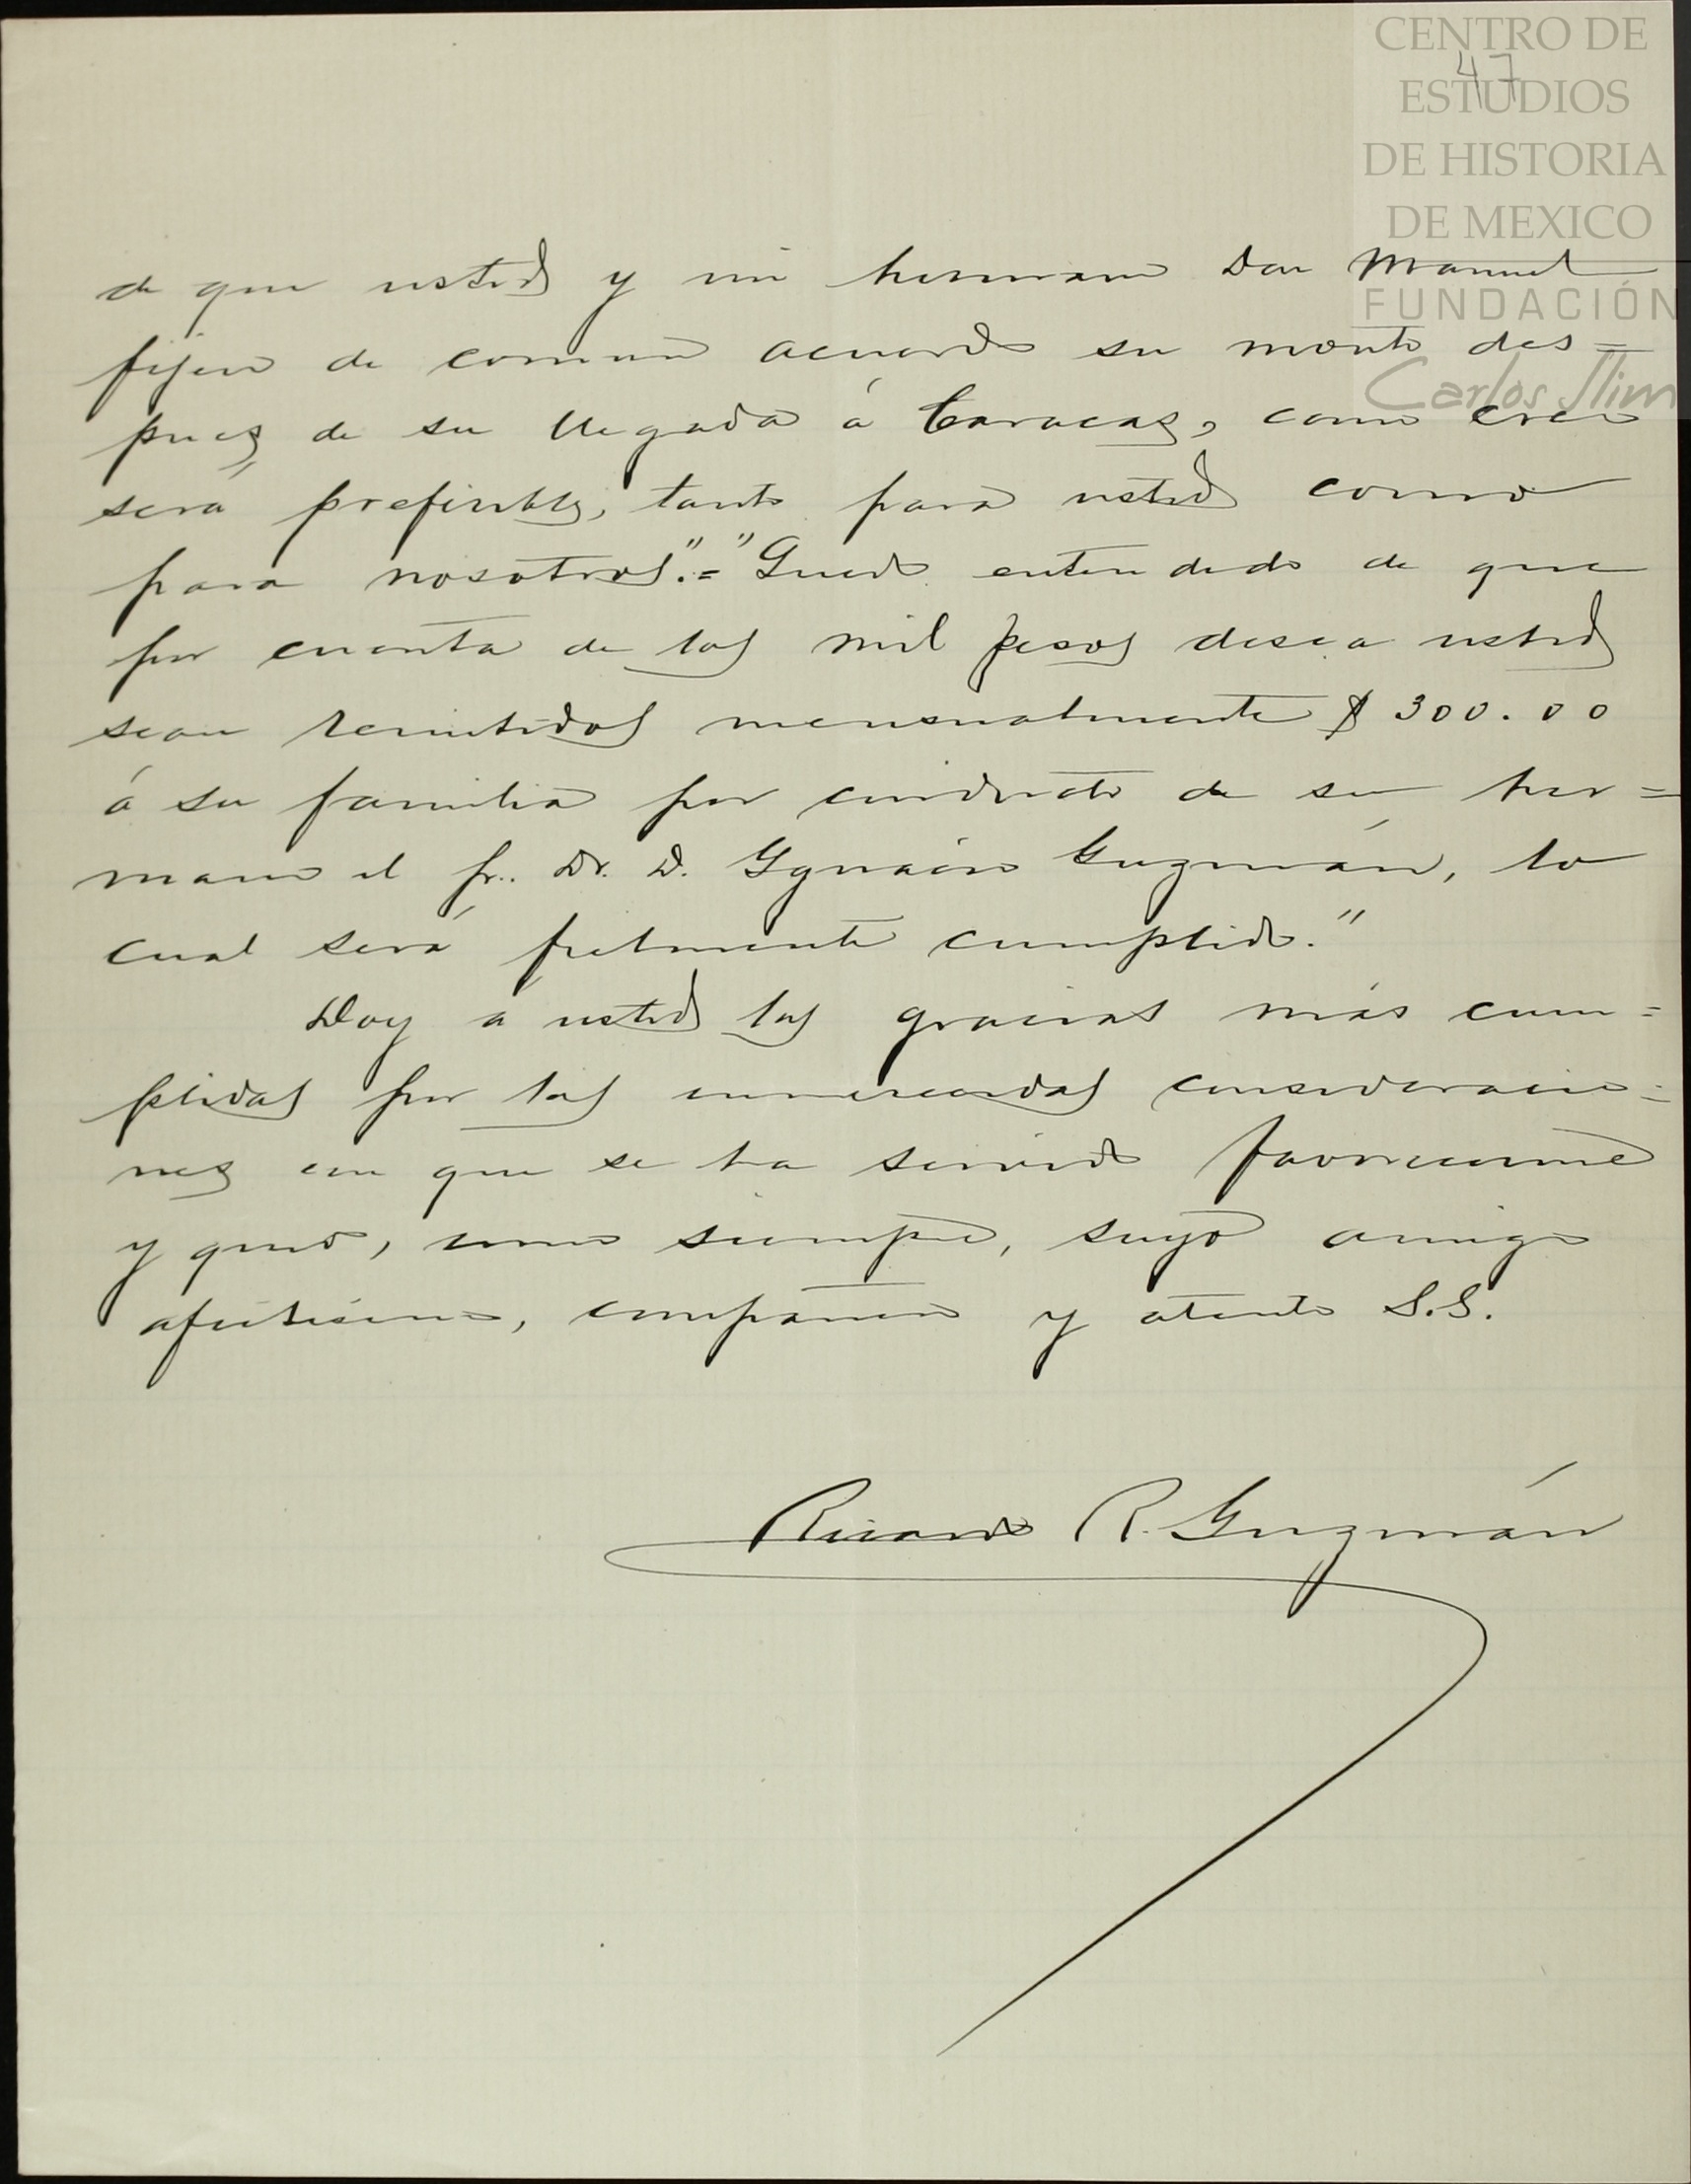 CENTRO DE
ESTUDIOS
DE HISTORIA
DE MEXICO
FUNDACIÓN
Carlos Slim
47
de que usted y mi hermano Don Manuel
fijen de comun acuerdo su monto des=
pues de su llegada á Caracas, como creo
será preferible, tanto para usted como
para nosotros."=" Quedo entendido de que
por cuenta de los mil pesos desea usted
sean remitidos mensualmente $300.00
á su familia por conducto de su her=
mano el Sr. Dr. D. Ygnacio Guzmán, lo
cual será fielmente cumplido."
Doy a usted las gracias más cum=
plidas por las inmerecidas consideracio=
nes con que se ha servido favorecerme
y quedo, como siempre, suyo amigo
afectísimo, compañero y atento S.S.
Ricardo R. Guzmán